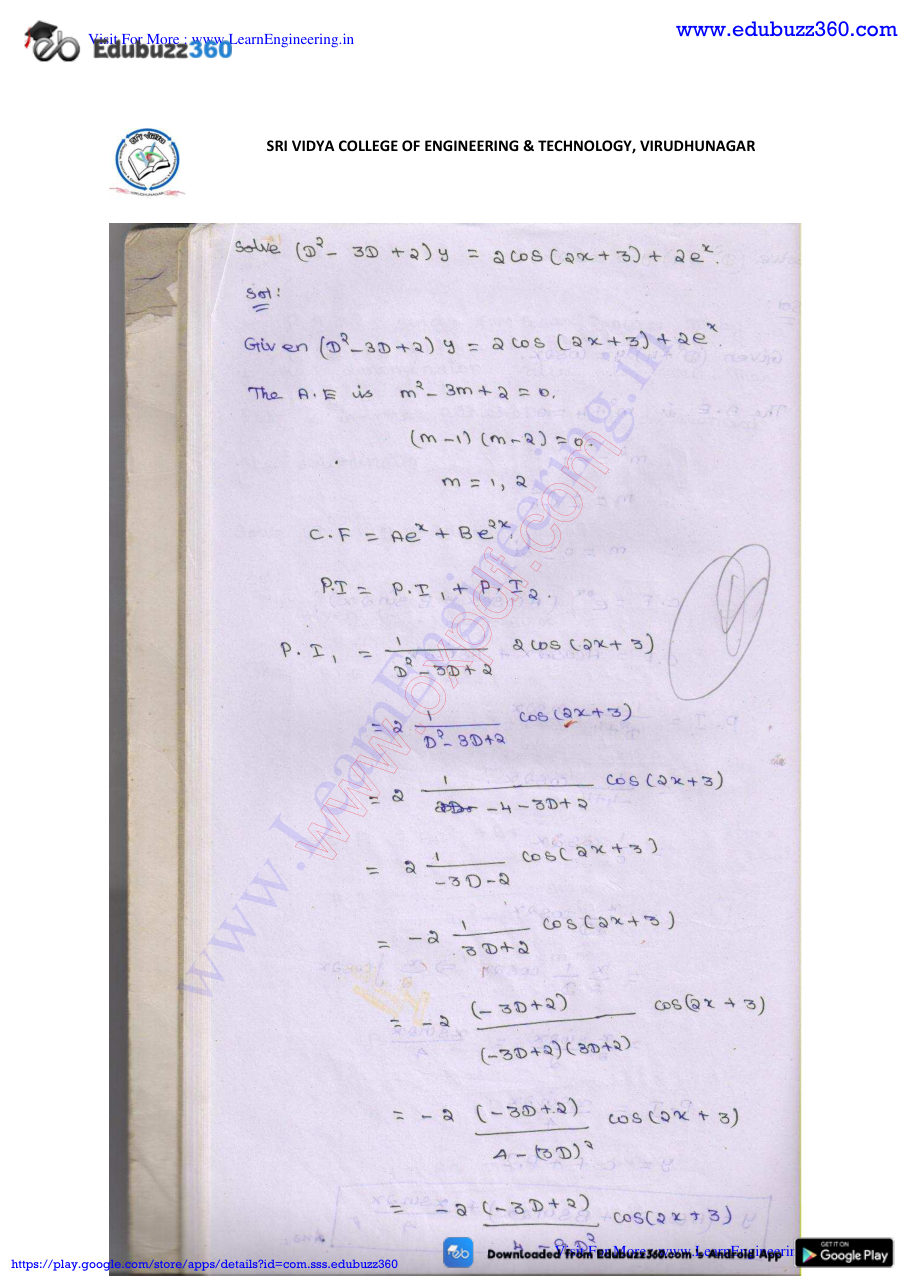 Visit For More : www.LearnEngineering.in
Edubuzz360
www.edubuzz360.com
SRI VIDYA COLLEGE OF ENGINEERING & TECHNOLOGY, VIRUDHUNAGAR
Solve (D² - 3D + 2) y = 2cos(2x+3) + 2eˣ.
Sol:
Given (D² - 3D + 2) y = 2cos(2x+3) + 2eˣ.
The A.E is m² - 3m + 2 = 0.
(m-1) (m-2) = 0.
m = 1, 2
C.F = Aeˣ + Be²ˣ.
P.I = P.I₁ + P.I₂.
P.I₁ = 1/(D² - 3D + 2) 2cos(2x+3)
= 2 1/(D² - 3D+2) cos(2x+3)
= 2 1/(-4-3D+2) cos(2x+3)
= 2 1/(-3D-2) cos(2x+3)
= -2 1/(3D+2) cos(2x+3)
= -2 (-3D+2)/((-3D+2)(3D+2)) cos(2x+3)
= -2 (-3D+2)/(4-(3D)²) cos(2x+3)
= -2 (-3D+2)/(4-9D²) cos(2x+3)
www.LearnEngineering.in
Downloaded from Edubuzz360.com 's Android App
Visit For More : www.LearnEngineerin
GET IT ON
Google Play
https://play.google.com/store/apps/details?id=com.sss.edubuzz360